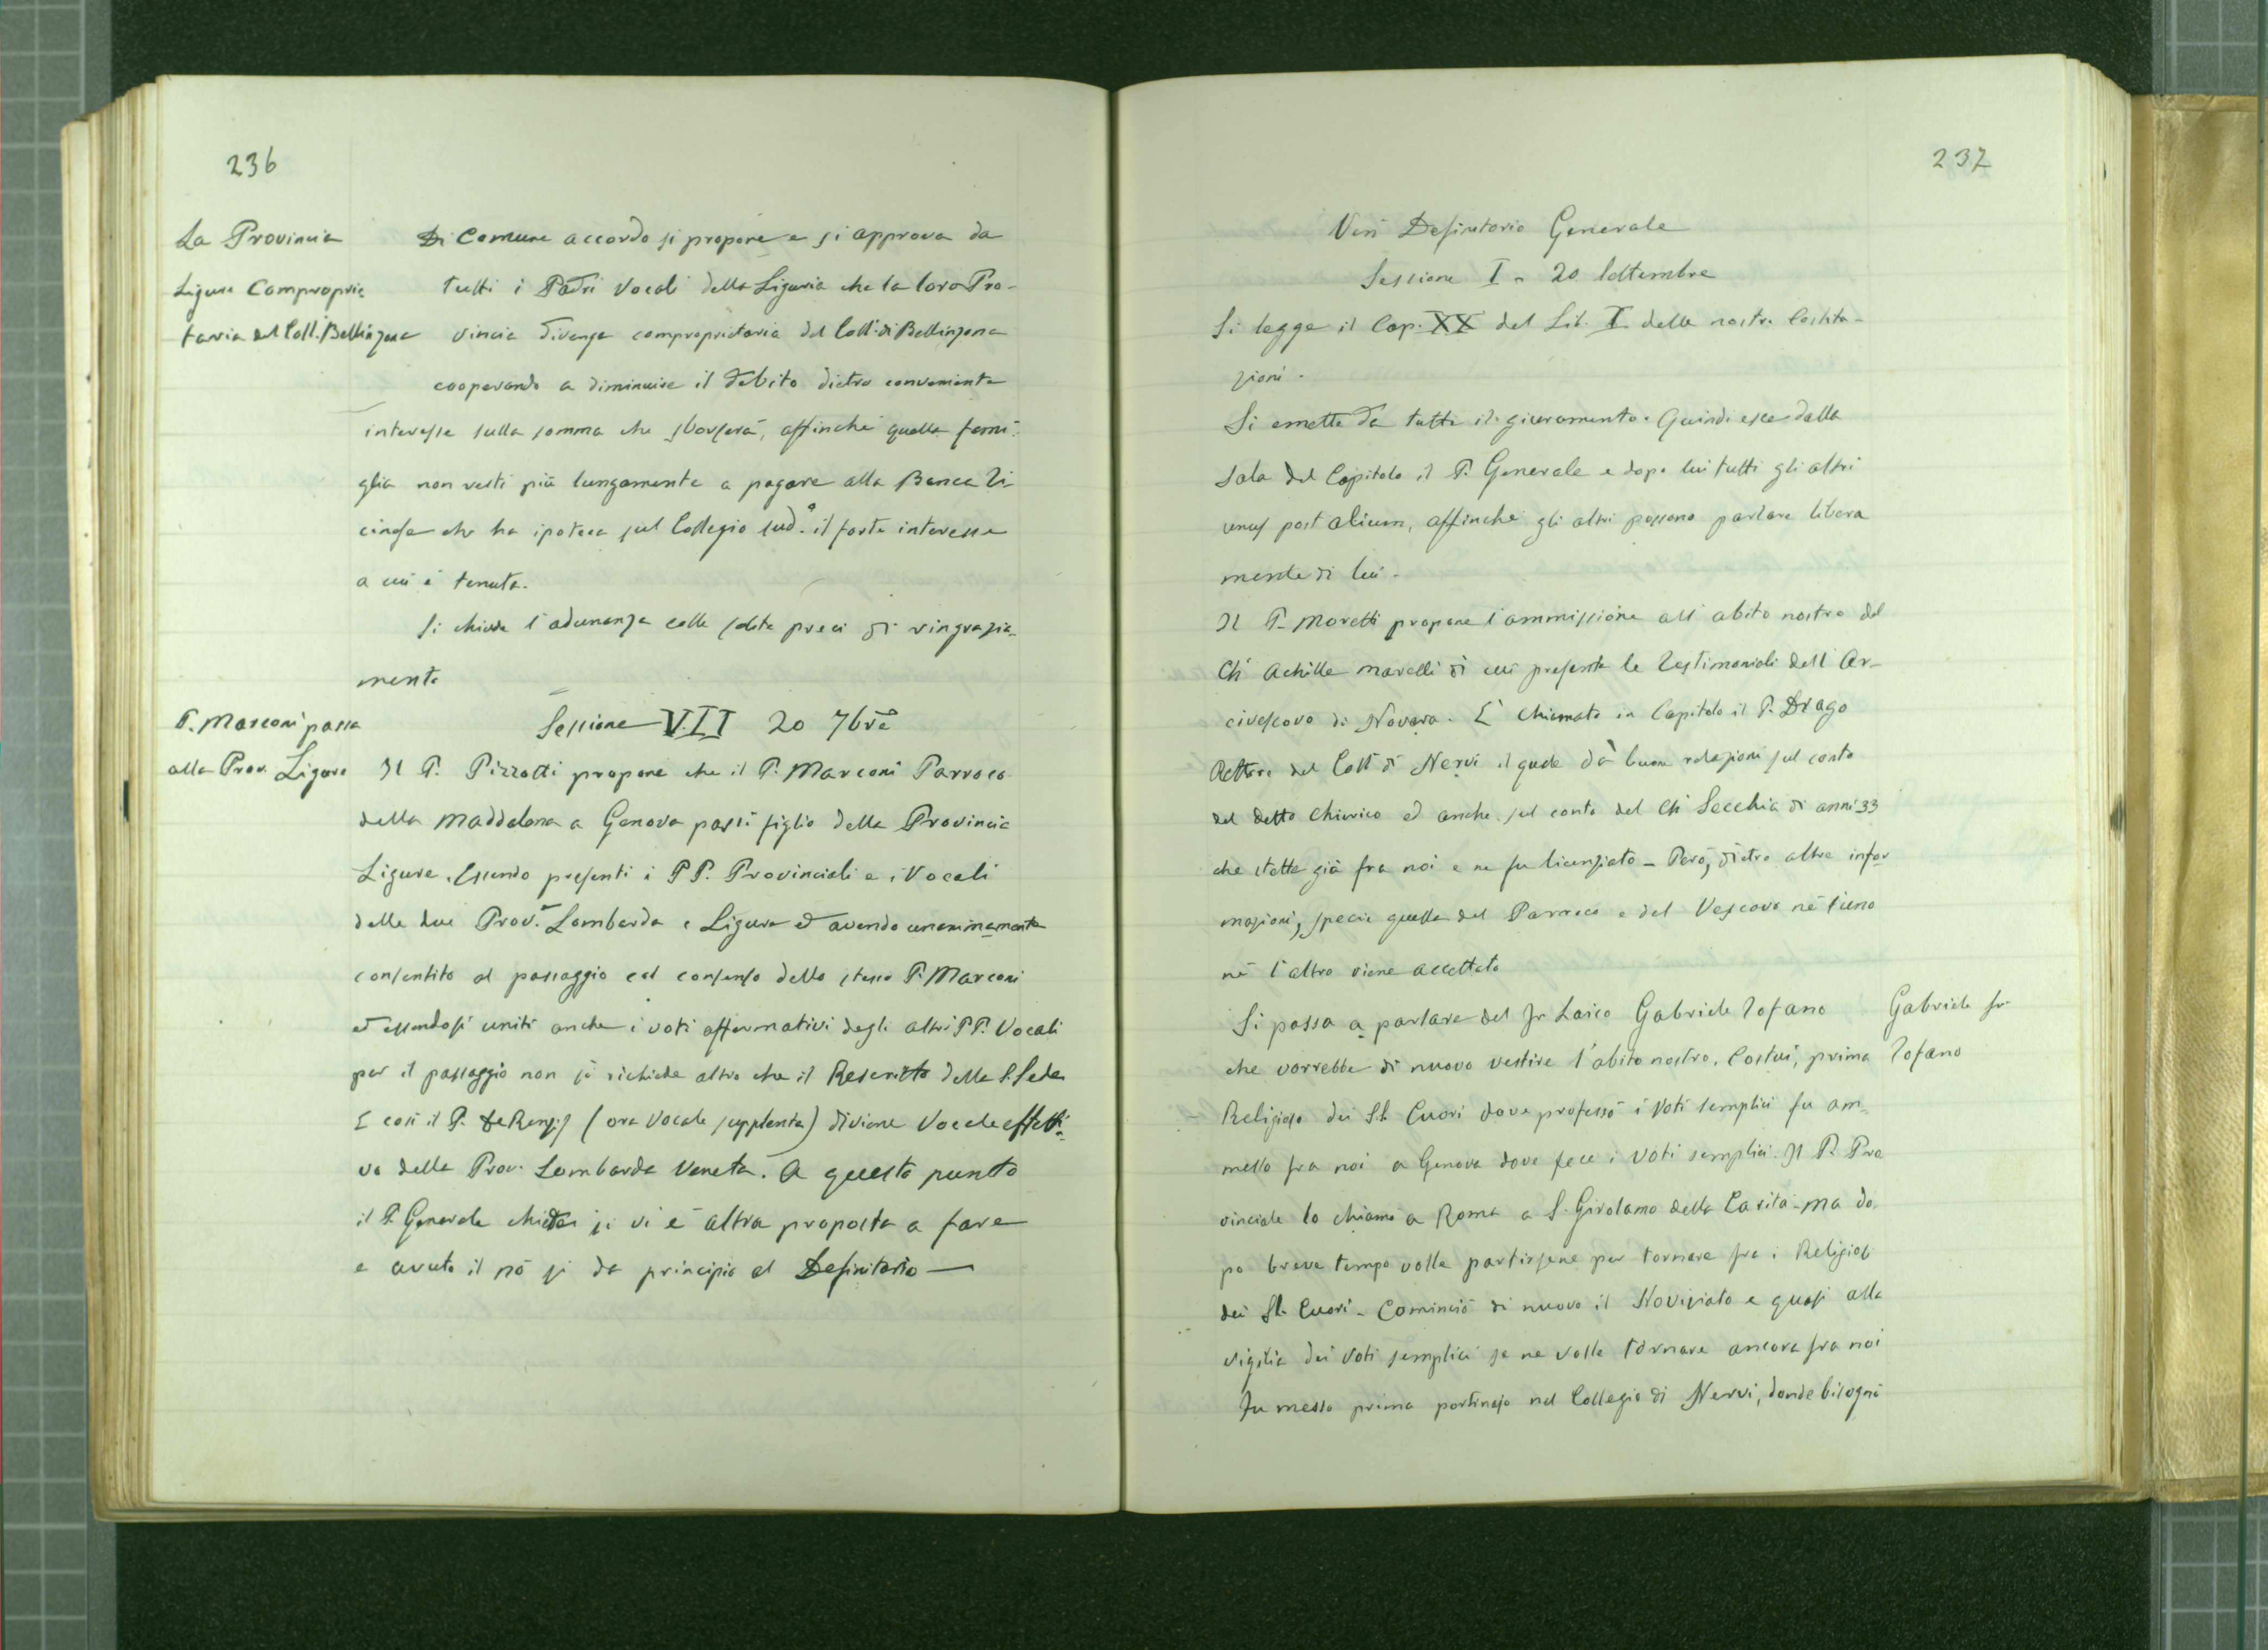 236
La Provincia
Ligure Comproprie
taria del Coll. Bellinzona
Di Comune accordo si propone e si approva da
tutti i Padri Vocali della Liguria che la loro Pro-
vincia divenga comproprietaria del Coll. di Bellinzona
cooperando a diminuire il debito dietro conveniente
interesse sulla somma che sborserà, affinchè quella fami-
glia non resti più lungamente a pagare alla Banca Ti-
cinese che ha ipoteca sul Collegio sud.º il forte interesse
a cui è tenuta.
Si chiude l'adunanza colle solite preci di ringrazia-
mento
P. Marconi passa
alla Prov. Ligure
Sessione VII 20 7bre
Il P. Pizzotti propone che il P. Marconi Parroco
della Maddalena a Genova passi figlio della Provincia
Ligure. Essendo presenti i PP. Provinciali e i Vocali
delle due Prov.e Lombarda e Ligure ed avendo unanimamente
consentito al passaggio col consenso dello stesso P. Marconi
ed essendosi uniti anche i voti affermativi degli altri PP. Vocali
per il passaggio non si richiede altro che il Rescritto della S. Sede
E così il P. De Renzis (ora Vocale supplente) diviene Vocale effetti-
vo della Prov. Lombarda Veneta. A questo punto
il P. Generale chiede se vi è altra proposta a fare
e avuto il nò si da principio al Definitorio —
237
Ven Definitorio Generale
Sessione I - 20 Settembre
Si legge il Cap. XX del Lib. I delle nostre Costitu-
zioni.
Si emette da tutti il giuramento. Quindi esce dalla
Sala del Capitolo il P. Generale e dopo lui tutti gli altri
unus post alium, affinchè gli altri possano parlare libera
mente di lui.
Il P. Moretti propone l'ammissione all'abito nostro del
Ch Achille Marelli di cui presenta le Testimoniali dell'Ar-
civescovo di Novara. È chiamato in Capitolo il P. Drago
Rettore del Coll di Nervi il quale dà buone relazioni sul conto
del detto Chierico ed anche sul conto del Ch Secchia di anni 33
che stette già fra noi e ne fu licenziato - Però, dietro altre infor
mazioni, specie quella del Parroco e del Vescovo nè l'uno
nè l'altro viene accettato
Si passa a parlare del Fr Laico Gabriele Tofano
Gabriele fr.
Tofano
che vorrebbe di nuovo vestire l'abito nostro. Costui, prima
Religioso dei SS. Cuori dove professò i Voti semplici fu am-
messo fra noi a Genova dove fece i Voti semplici. Il P. Pro
vinciale lo chiamò a Roma a S. Girolamo della Carità - ma do-
po breve tempo volle partirsene per tornare fra i Religiosi
dei SS. Cuori - Cominciò di nuovo il Noviziato e quasi alla
vigilia dei Voti semplici se ne volle tornare ancora fra noi
Fu messo prima portinajo nel Collegio di Nervi, donde bisognò